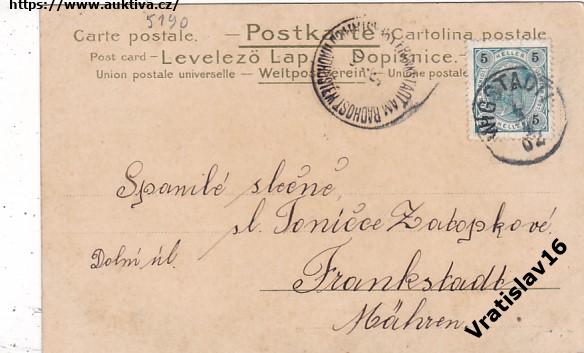 https://www.auktiva.cz/
5190
Carte postale. — Postkarte — Cartolina postale.
Post card — Levelező Lap. — Dopisnice.
Union postale universelle — Weltpostverein — Unione postale
5 HELLER 5
5
WIGSTADTL
02
FRANKSTADT AM RADHOST
Spanilé slečně,
sl. Toničce Zatopkové.
Dolní úl.
Frankstadt
Mähren
Vratislav16